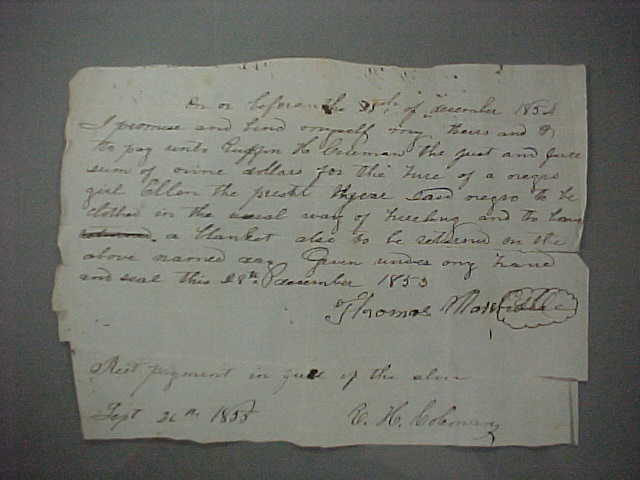 On or before the 25th of december 1854
I promise and bind myself my heirs and
to pay unto Ruffin H Coleman the just and full
sum of nine dollars for the hire of a negro
girl Ellen the present year Said negro to be
clothed in the usual way of hireling and to have
a blanket also to be returned on the
above named day Given under my hand
and seal this 28th december 1853
Thomas
Rect payment in full of the above
Sept 26th 1855 R. H. Coleman